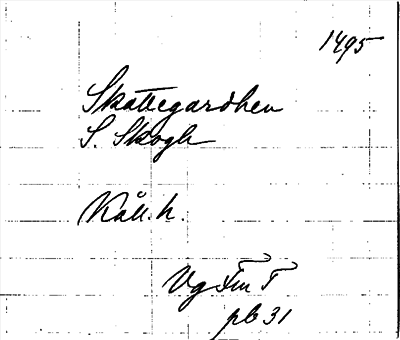 1495
Skattegardhen
S. Skogh
Kåll. h.
Vg Fm T
pb 31